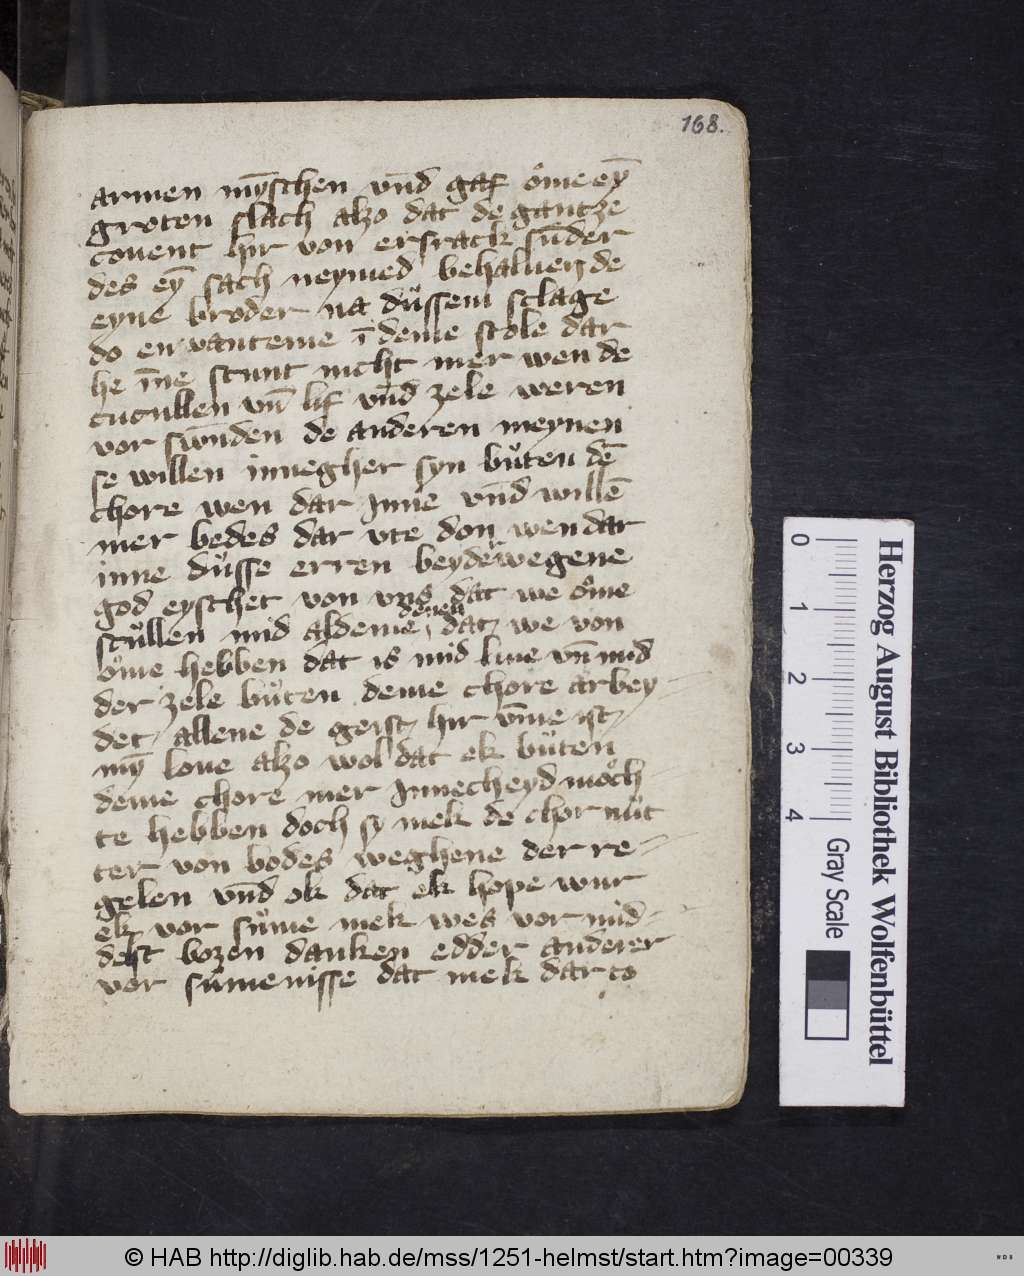 168.
armen mēschen vnd gaf ome eyn
groten slach alzo dat de gantze
couent hir von ersrack sunder
des eȳ sach neymed behaluen de
eyne broder na dussem sclage
do en vanteme ī deme stole dar
he īne stunt nicht mer wen de
cucullen vn̄ lif vnd zele weren
vor swnden de anderen meynen
se willen innegher syn buten dē
chore wen dar Inne vnd willē
mer bedes dar vte don wen dar
inne dusse erren beyde wegene
god eyschet von vns dat we ome
denen
stullen mid aldeme dat we von
ome hebben dat is mid liue vn̄ mid
der zele buten deme chore arbey-
det allene de geist hir vme ist
my loue alzo wol dat ek buten
deme chore mer Innecheyd moch
te hebben doch sy mek de chor nut
ter von bodes weghene der re-
gelen vnd ok dat ek hope wur
ek vor sume mek wes vor mid-
delst bozen danken edder anderer
vor sumenisse dat mek dar to
0 1 2 3 4
Gray Scale
Herzog August Bibliothek Wolfenbüttel
© HAB http://diglib.hab.de/mss/1251-helmst/start.htm?image=00339